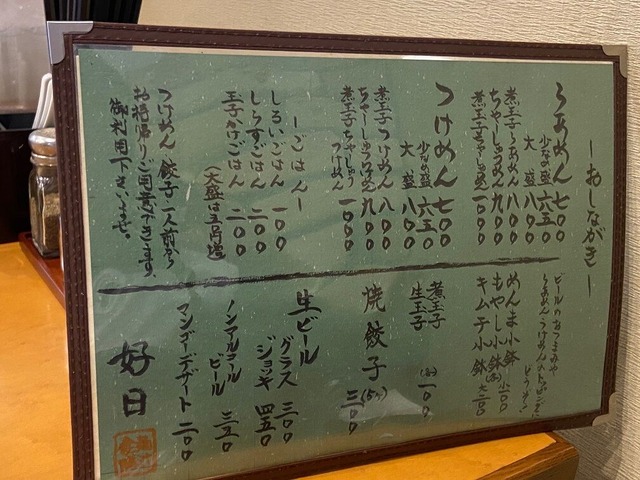 ーおしながきー
らあめん 七〇〇
少なめ盛 六五〇
大盛 八〇〇
煮玉子らあめん 八〇〇
ちゃーしゅうめん 九〇〇
煮玉子ちゃーしゅうめん 一〇〇〇
つけめん 七〇〇
少なめ盛 六五〇
大盛 八〇〇
煮玉子つけめん 八〇〇
ちゃーしゅうつけめん 九〇〇
煮玉子ちゃーしゅうつけめん 一〇〇〇
ーごはんー
しろいごはん 一〇〇
しらすごはん 二〇〇
玉子かけごはん 二〇〇
(大盛は五十円増)
つけめん 餃子・一人前から
お持帰りご用意できます。
御利用下さいませ。
ビールのおつまみや
らあめん つけめんのトッピングに
どうぞ!
めんま小鉢
もやし小鉢 (各) 小一〇〇
キムチ小鉢 大二〇〇
煮玉子
生玉子 (各) 一〇〇
焼餃子 (5ケ) 三〇〇
生ビール
グラス 三〇〇
ジョッキ 四五〇
ノンアルコール
ビール 三五〇
マンゴーデザート 二〇〇
好日